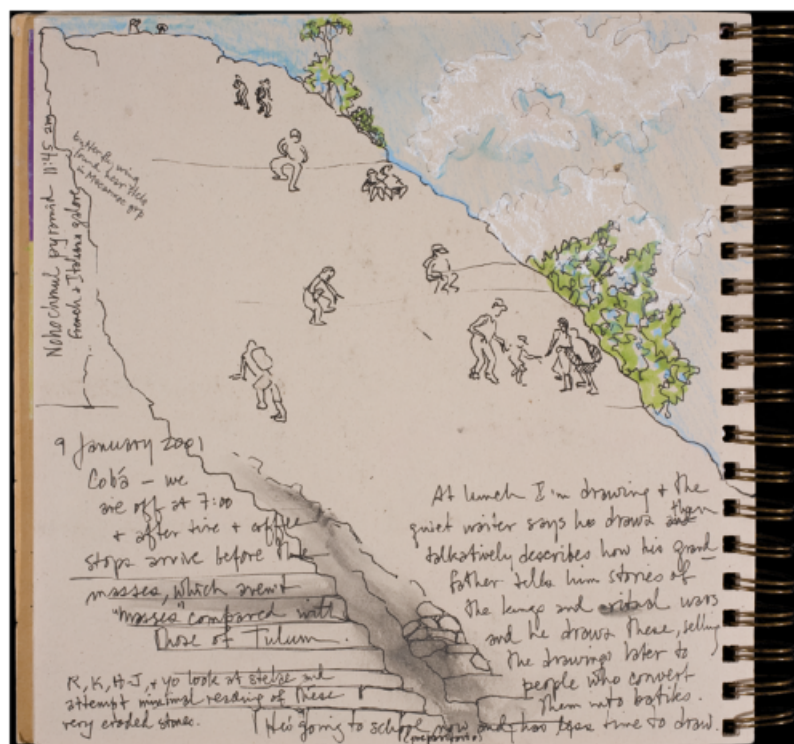 Nohochmul pyramid 11:45 am
French & Italians galore
butterfly wing
found near stela
in Macanxoc grp
9 January 2001
Cobá – we
are off at 7:00
+ after tire + coffee
stops arrive before the
masses, which aren't
"masses" compared with
those of Tulum.
R, K, H-J, + yo look at stelae and
attempt minimal reading of these
very eroded stones.
At lunch I'm drawing + the
quiet waiter says he draws and then
talkatively describes how his grand-
father tells him stories of
the kings and wars
and he draws these, selling
the drawings later to
people who convert
them into batiks.
He's going to school now and has less time to draw.
(preparatoria)